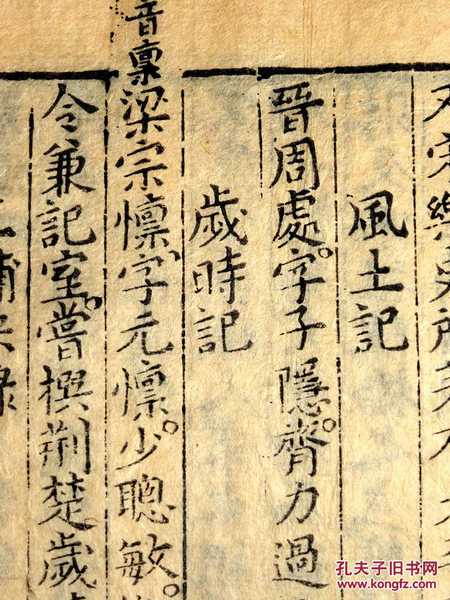 風土記
晉周處。字子隱。膂力過
歲時記
音稟
梁宗懍、字元懍。少聰敏。
令兼記室。嘗撰荊楚歲
孔夫子旧书网
www.kongfz.com